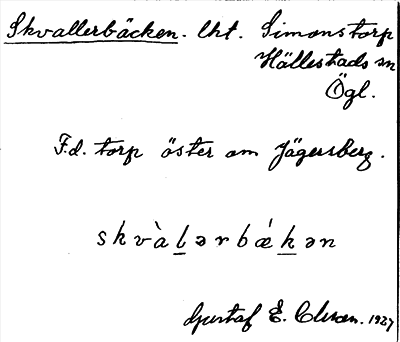 Skvallerbäcken. lht. Simonstorp
Hällestads sn
Ögl.
F.d. torp öster om Jägersberg.
skvàlərbǽkən
Gustaf E. 1927